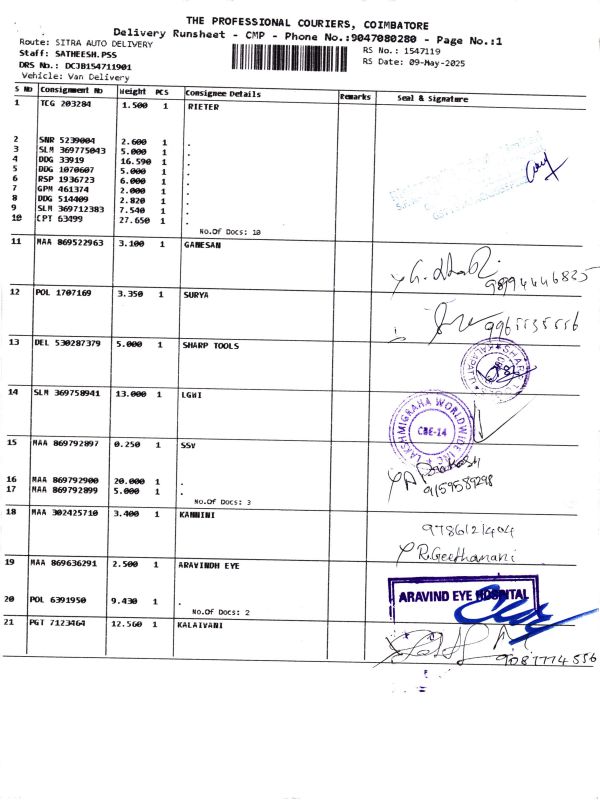 THE PROFESSIONAL COURIERS, COIMBATORE
Delivery Runsheet - CMP - Phone No.:9047080280 - Page No.:1
Route: SITRA AUTO DELIVERY
Staff: SATHEESH.PSS
DRS No.: DCJB154711901
Vehicle: Van Delivery
RS No.: 1547119
RS Date: 09-May-2025
S No Consignment No Weight PCS Consignee Details Remarks Seal & Signature
1 TCG 203284 1.500 1 RIETER
2 SNR 5239004 2.600 1 .
3 SLM 369775043 5.000 1 .
4 DDG 33919 16.590 1 .
5 DDG 1070607 5.000 1 .
6 RSP 1936723 6.000 1 .
7 GPM 461374 2.000 1 .
8 DDG 514409 2.820 1 .
9 SLM 369712383 7.540 1 .
10 CPT 63499 27.650 1 .
No.Of Docs: 10
11 MAA 869522963 3.100 1 GANESAN
9894446825
12 POL 1707169 3.350 1 SURYA
9965535556
13 DEL 530287379 5.000 1 SHARP TOOLS
14 SLM 369758941 13.000 1 LGWI
LAKSHMIGRAHA WORLDWIDE INC
CBE-14
15 MAA 869792897 0.250 1 SSV
Prakash
9159589298
16 MAA 869792900 20.000 1 .
17 MAA 869792899 5.000 1 .
No.Of Docs: 3
18 MAA 302425710 3.400 1 KANNINI
9786121404
R.Geethamani
19 MAA 869636291 2.500 1 ARAVINDH EYE
ARAVIND EYE HOSPITAL
20 POL 6391950 9.430 1 .
No.Of Docs: 2
21 PGT 7123464 12.560 1 KALAIVANI
9087774556